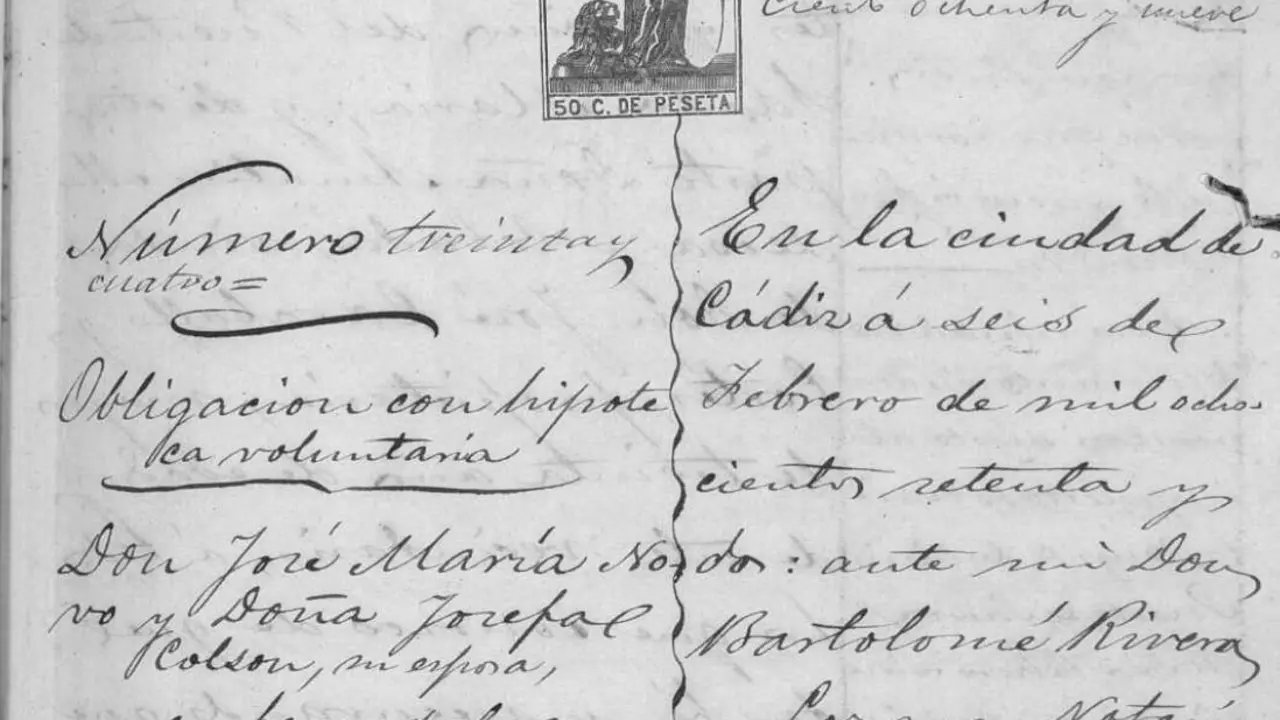 ciento ochenta y nueve
50 C. DE PESETA
Número treinta y
cuatro=
Obligacion con hipote
ca voluntaria
Don José María No
vo y Doña Josefa
Colson, su esposa,
En la ciudad de
Cádiz á seis de
Febrero de mil ocho
cientos setenta y
dos: ante mi Don
Bartolomé Rivera